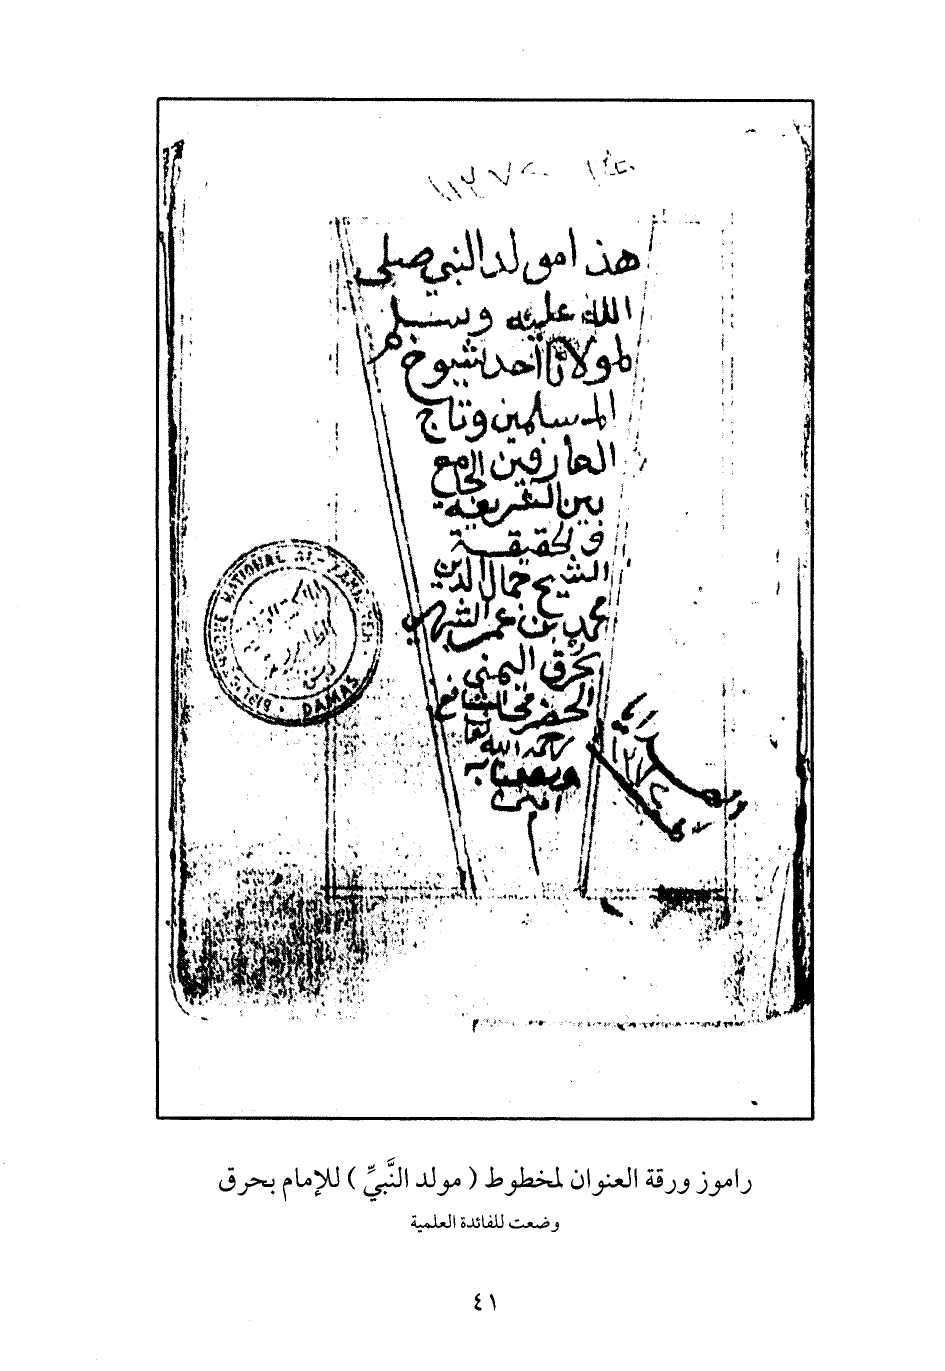 هذا مولد النبي صلى
الله عليه وسلم
لمولانا أحد شيوخ
المسلمين وتاج
العارفين الجامع
بين الشريعة
والحقيقة
الشيخ جمال الدين
محمد بن عمر الشهير
بحرق اليمني
الحضرمي الشافعي
رحمه الله
آمين
BIBLIOTHEQUE NATIONAL AL-ZAHIRIAH
DAMAS
راموز ورقة العنوان لمخطوط ( مولد النَّبيِّ ) للإمام بحرق
وضعت للفائدة العلمية
٤١